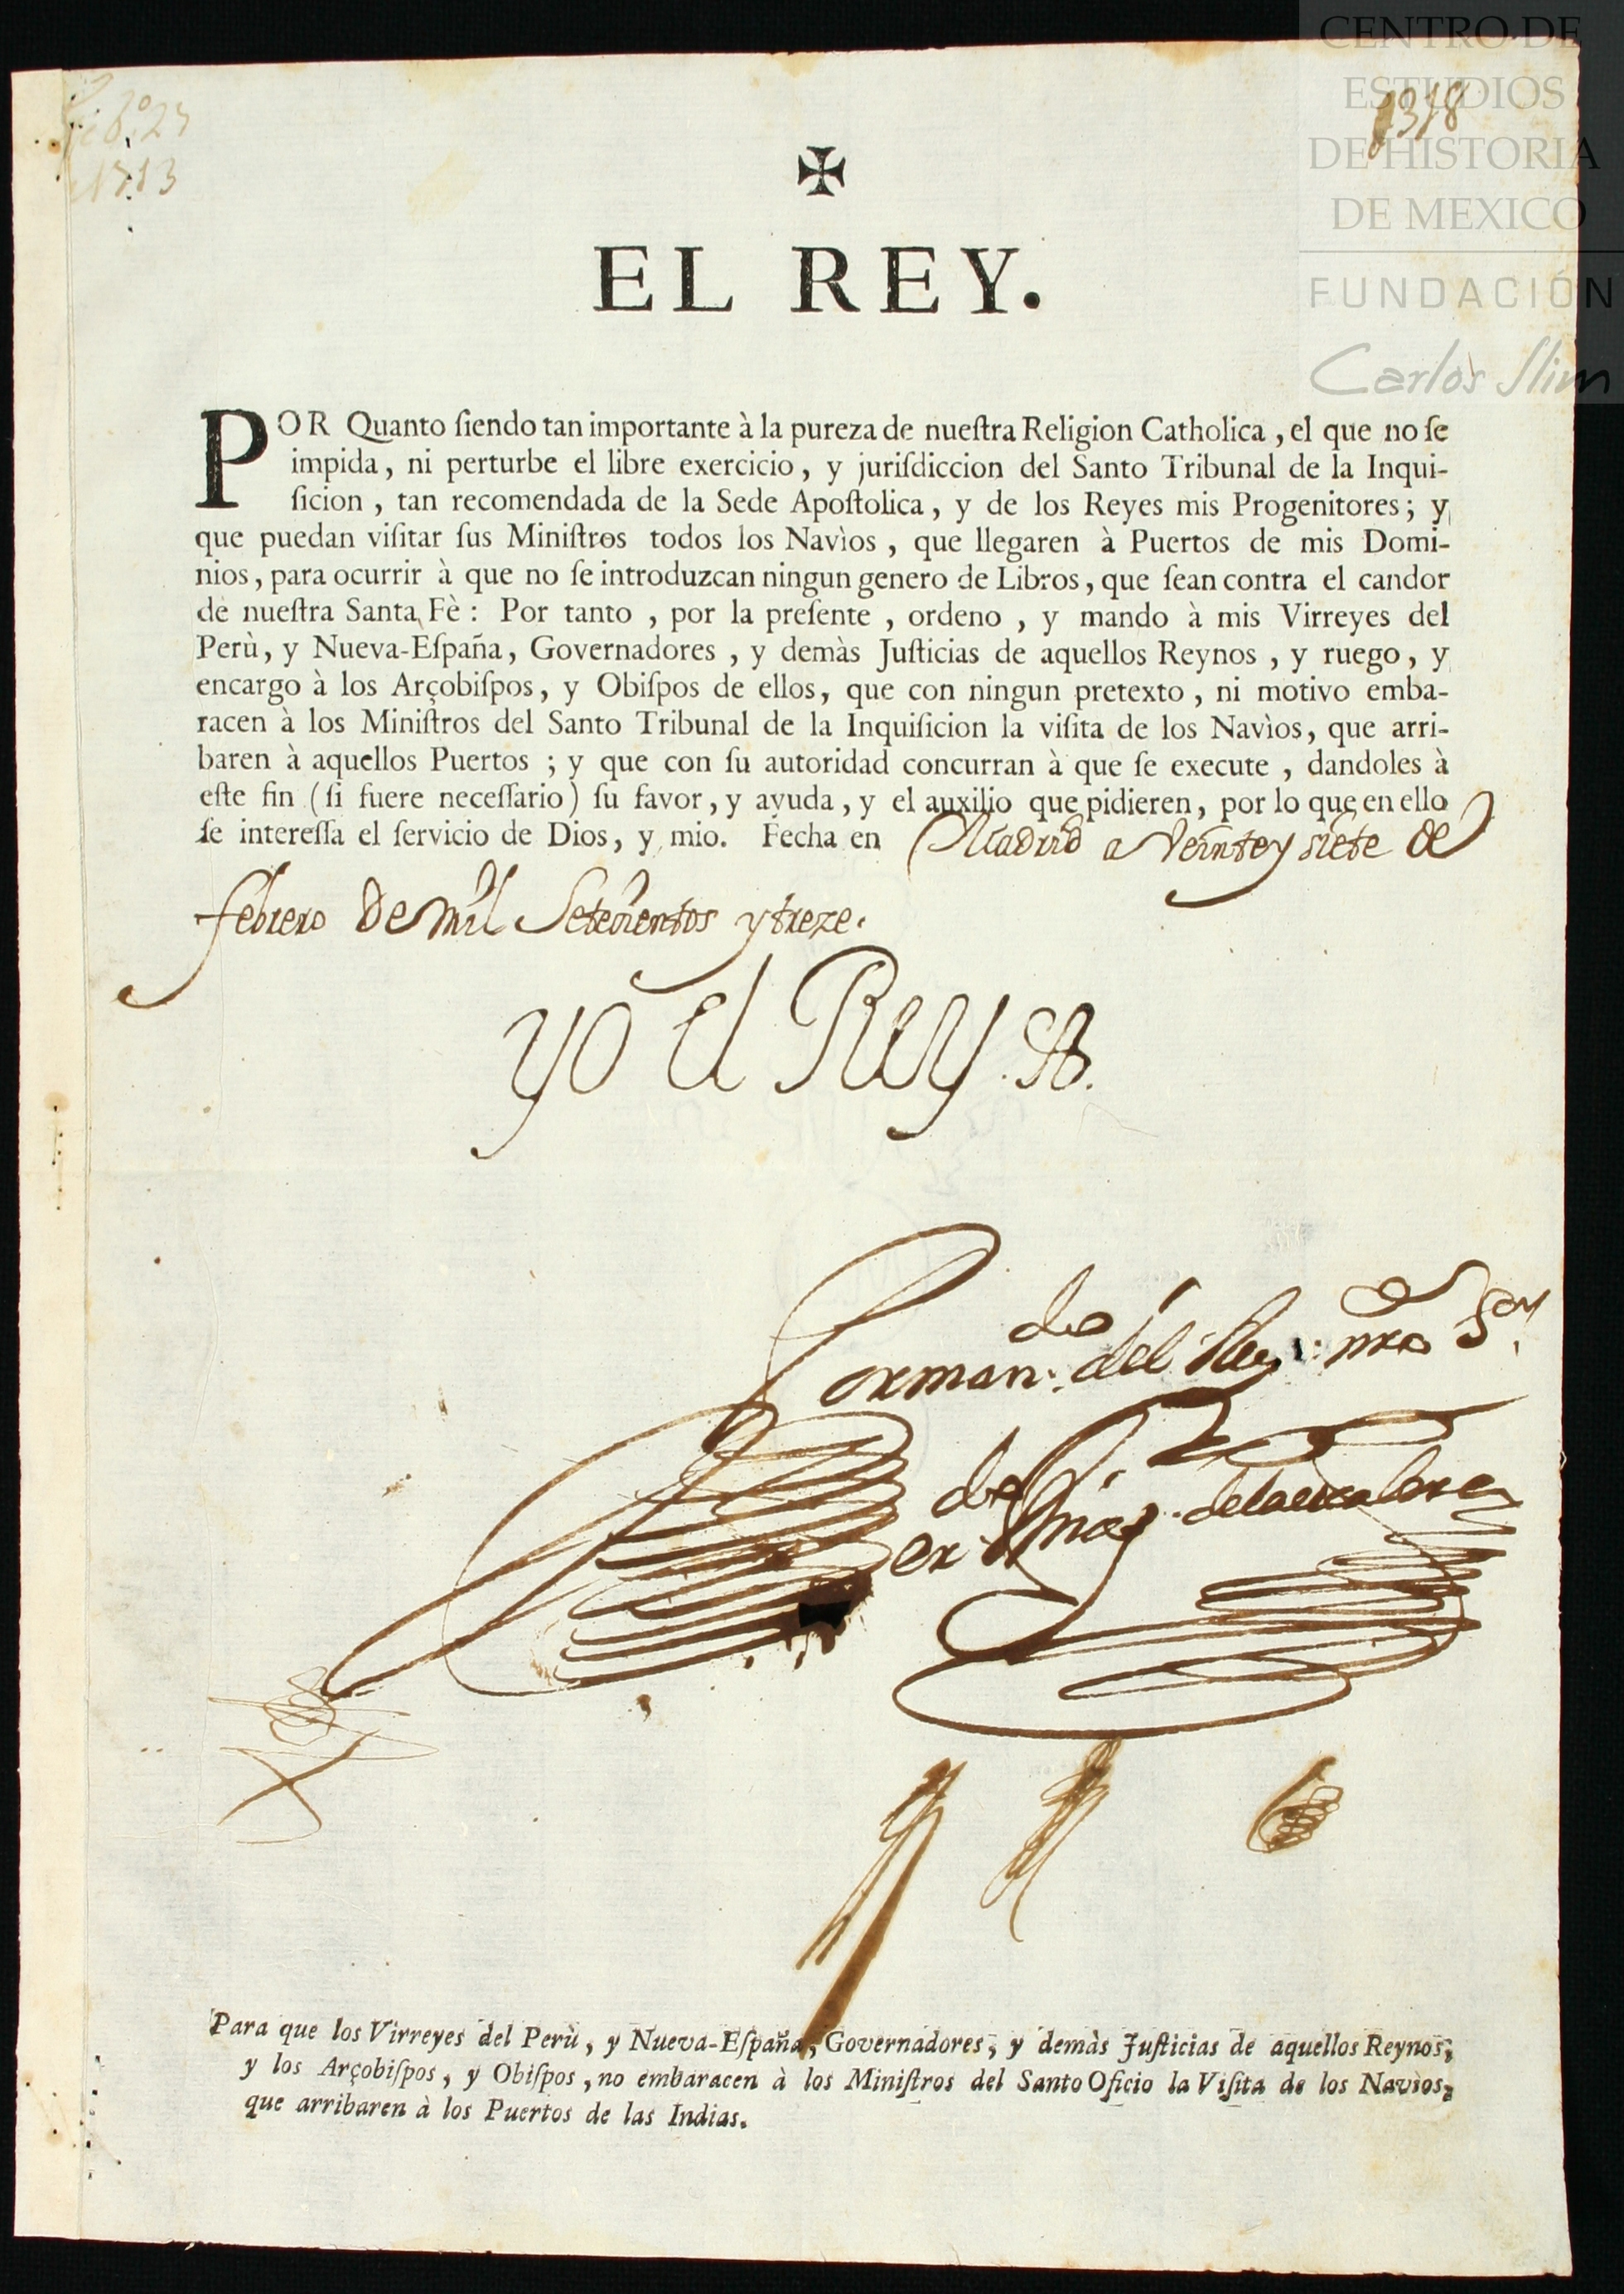 CENTRO DE
ESTUDIOS
DE HISTORIA
DE MEXICO
FUNDACIÓN
Carlos Slim
1713
✠
EL REY.
POR Quanto ſiendo tan importante à la pureza de nueſtra Religion Catholica, el que no ſe
impida, ni perturbe el libre exercicio, y juriſdiccion del Santo Tribunal de la Inqui-
ſicion, tan recomendada de la Sede Apoſtolica, y de los Reyes mis Progenitores; y
que puedan viſitar ſus Miniſtros todos los Navìos, que llegaren à Puertos de mis Domi-
nios, para ocurrir à que no ſe introduzcan ningun genero de Libros, que ſean contra el candor
de nueſtra Santa Fè: Por tanto, por la preſente, ordeno, y mando à mis Virreyes del
Perù, y Nueva-Eſpaña, Governadores, y demàs Juſticias de aquellos Reynos, y ruego, y
encargo à los Arçobiſpos, y Obiſpos de ellos, que con ningun pretexto, ni motivo emba-
racen à los Miniſtros del Santo Tribunal de la Inquiſicion la viſita de los Navìos, que arri-
baren à aquellos Puertos; y que con ſu autoridad concurran à que ſe execute, dandoles à
eſte fin (ſi fuere neceſſario) ſu favor, y ayuda, y el auxilio que pidieren, por lo que en ello
ſe intereſſa el ſervicio de Dios, y mio. Fecha en Madrid a Veinte y siete de
febrero de mil Setecientos y treze.
yo el Rey
Por man.do del Rey nro S.or
Para que los Virreyes del Perù, y Nueva-Eſpaña, Governadores, y demàs Juſticias de aquellos Reynos,
y los Arçobiſpos, y Obiſpos, no embaracen à los Miniſtros del Santo Oficio la Viſita de los Navìos,
que arribaren à los Puertos de las Indias.